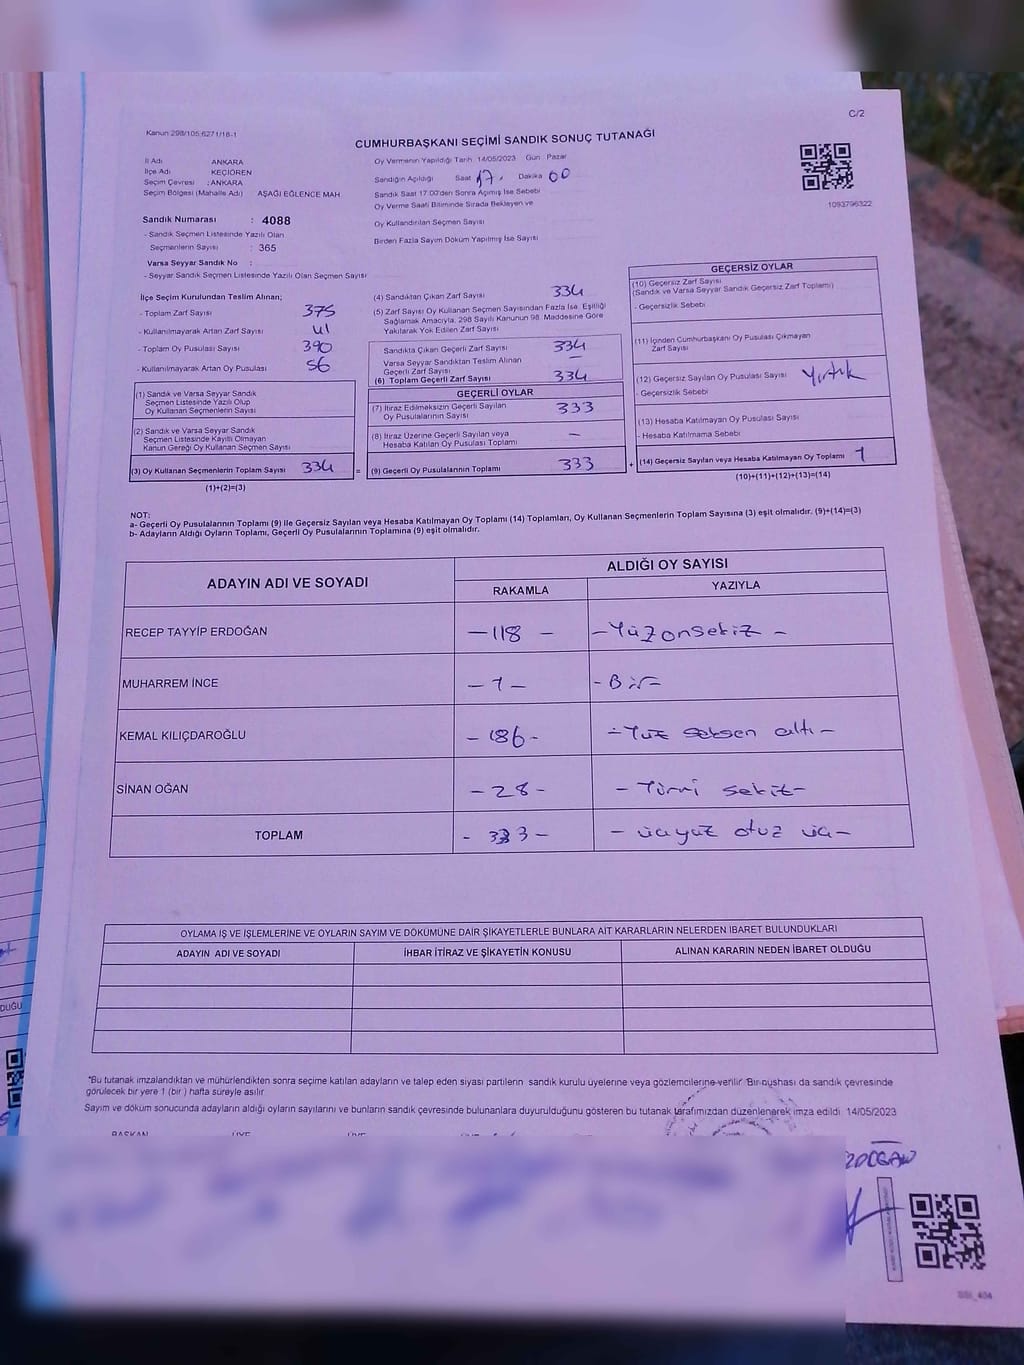 C/2
Kanun 298/105 6271/18-1
CUMHURBAŞKANI SEÇİMİ SANDIK SONUÇ TUTANAĞI
İl Adı ANKARA
İlçe Adı KEÇİÖREN
Seçim Çevresi : ANKARA
Seçim Bölgesi (Mahalle Adı) AŞAĞI EĞLENCE MAH.
Oy Vermenin Yapıldığı Tarih 14/05/2023 Gün Pazar
Sandığın Açıldığı Saat 17. Dakika 00
Sandık Saat 17:00'den Sonra Açılmış İse Sebebi
Oy Verme Saati Bitiminde Sırada Bekleyen ve
Oy Kullandırılan Seçmen Sayısı
Birden Fazla Sayım Döküm Yapılmış İse Sayısı
1093796322
Sandık Numarası : 4088
- Sandık Seçmen Listesinde Yazılı Olan
Seçmenlerin Sayısı : 365
Varsa Seyyar Sandık No :
- Seyyar Sandık Seçmen Listesinde Yazılı Olan Seçmen Sayısı
İlçe Seçim Kurulundan Teslim Alınan;
- Toplam Zarf Sayısı 375
- Kullanılmayarak Artan Zarf Sayısı 41
- Toplam Oy Pusulası Sayısı 390
- Kullanılmayarak Artan Oy Pusulası 56
(1) Sandık ve Varsa Seyyar Sandık
Seçmen Listesinde Yazılı Olup
Oy Kullanan Seçmenlerin Sayısı
(2) Sandık ve Varsa Seyyar Sandık
Seçmen Listesinde Kayıtlı Olmayan
Kanun Gereği Oy Kullanan Seçmen Sayısı
(3) Oy Kullanan Seçmenlerin Toplam Sayısı 334
(1)+(2)=(3)
(4) Sandıktan Çıkan Zarf Sayısı 334
(5) Zarf Sayısı Oy Kullanan Seçmen Sayısından Fazla İse, Eşitliği
Sağlamak Amacıyla, 298 Sayılı Kanunun 98. Maddesine Göre
Yakılarak Yok Edilen Zarf Sayısı
Sandıkta Çıkan Geçerli Zarf Sayısı 334
Varsa Seyyar Sandıktan Teslim Alınan
Geçerli Zarf Sayısı —
(6) Toplam Geçerli Zarf Sayısı 334
GEÇERLİ OYLAR
(7) İtiraz Edilmeksizin Geçerli Sayılan
Oy Pusulalarının Sayısı 333
(8) İtiraz Üzerine Geçerli Sayılan veya
Hesaba Katılan Oy Pusulası Toplamı —
= (9) Geçerli Oy Pusulalarının Toplamı 333
GEÇERSİZ OYLAR
(10) Geçersiz Zarf Sayısı
(Sandık ve Varsa Seyyar Sandık Geçersiz Zarf Toplamı)
- Geçersizlik Sebebi
(11) İçinden Cumhurbaşkanı Oy Pusulası Çıkmayan
Zarf Sayısı
(12) Geçersiz Sayılan Oy Pusulası Sayısı Yırtık
- Geçersizlik Sebebi
(13) Hesaba Katılmayan Oy Pusulası Sayısı
- Hesaba Katılmama Sebebi
+ (14) Geçersiz Sayılan veya Hesaba Katılmayan Oy Toplamı 1
(10)+(11)+(12)+(13)=(14)
NOT:
a- Geçerli Oy Pusulalarının Toplamı (9) ile Geçersiz Sayılan veya Hesaba Katılmayan Oy Toplamı (14) Toplamları, Oy Kullanan Seçmenlerin Toplam Sayısına (3) eşit olmalıdır. (9)+(14)=(3)
b- Adayların Aldığı Oyların Toplamı, Geçerli Oy Pusulalarının Toplamına (9) eşit olmalıdır.
ADAYIN ADI VE SOYADI ALDIĞI OY SAYISI
RAKAMLA YAZIYLA
RECEP TAYYİP ERDOĞAN —118 — —Yüzonsekiz —
MUHARREM İNCE —1— -Bir—
KEMAL KILIÇDAROĞLU -186- -Yüz seksen altı-
SİNAN OĞAN -28- - Yirmi sekiz-
TOPLAM - 333- - üçyüz otuz üç-
OYLAMA İŞ VE İŞLEMLERİNE VE OYLARIN SAYIM VE DÖKÜMÜNE DAİR ŞİKAYETLERLE BUNLARA AİT KARARLARIN NELERDEN İBARET BULUNDUKLARI
ADAYIN ADI VE SOYADI İHBAR İTİRAZ VE ŞİKAYETİN KONUSU ALINAN KARARIN NEDEN İBARET OLDUĞU
*Bu tutanak imzalandıktan ve mühürlendikten sonra seçime katılan adayların ve talep eden siyasi partilerin sandık kurulu üyelerine veya gözlemcilerine verilir. Bir nüshası da sandık çevresinde
görülecek bir yere 1 (bir) hafta süreyle asılır
Sayım ve döküm sonucunda adayların aldığı oyların sayılarını ve bunların sandık çevresinde bulunanlara duyurulduğunu gösteren bu tutanak tarafımızdan düzenlenerek imza edildi. 14/05/2023
BAŞKAN ÜYE ÜYE